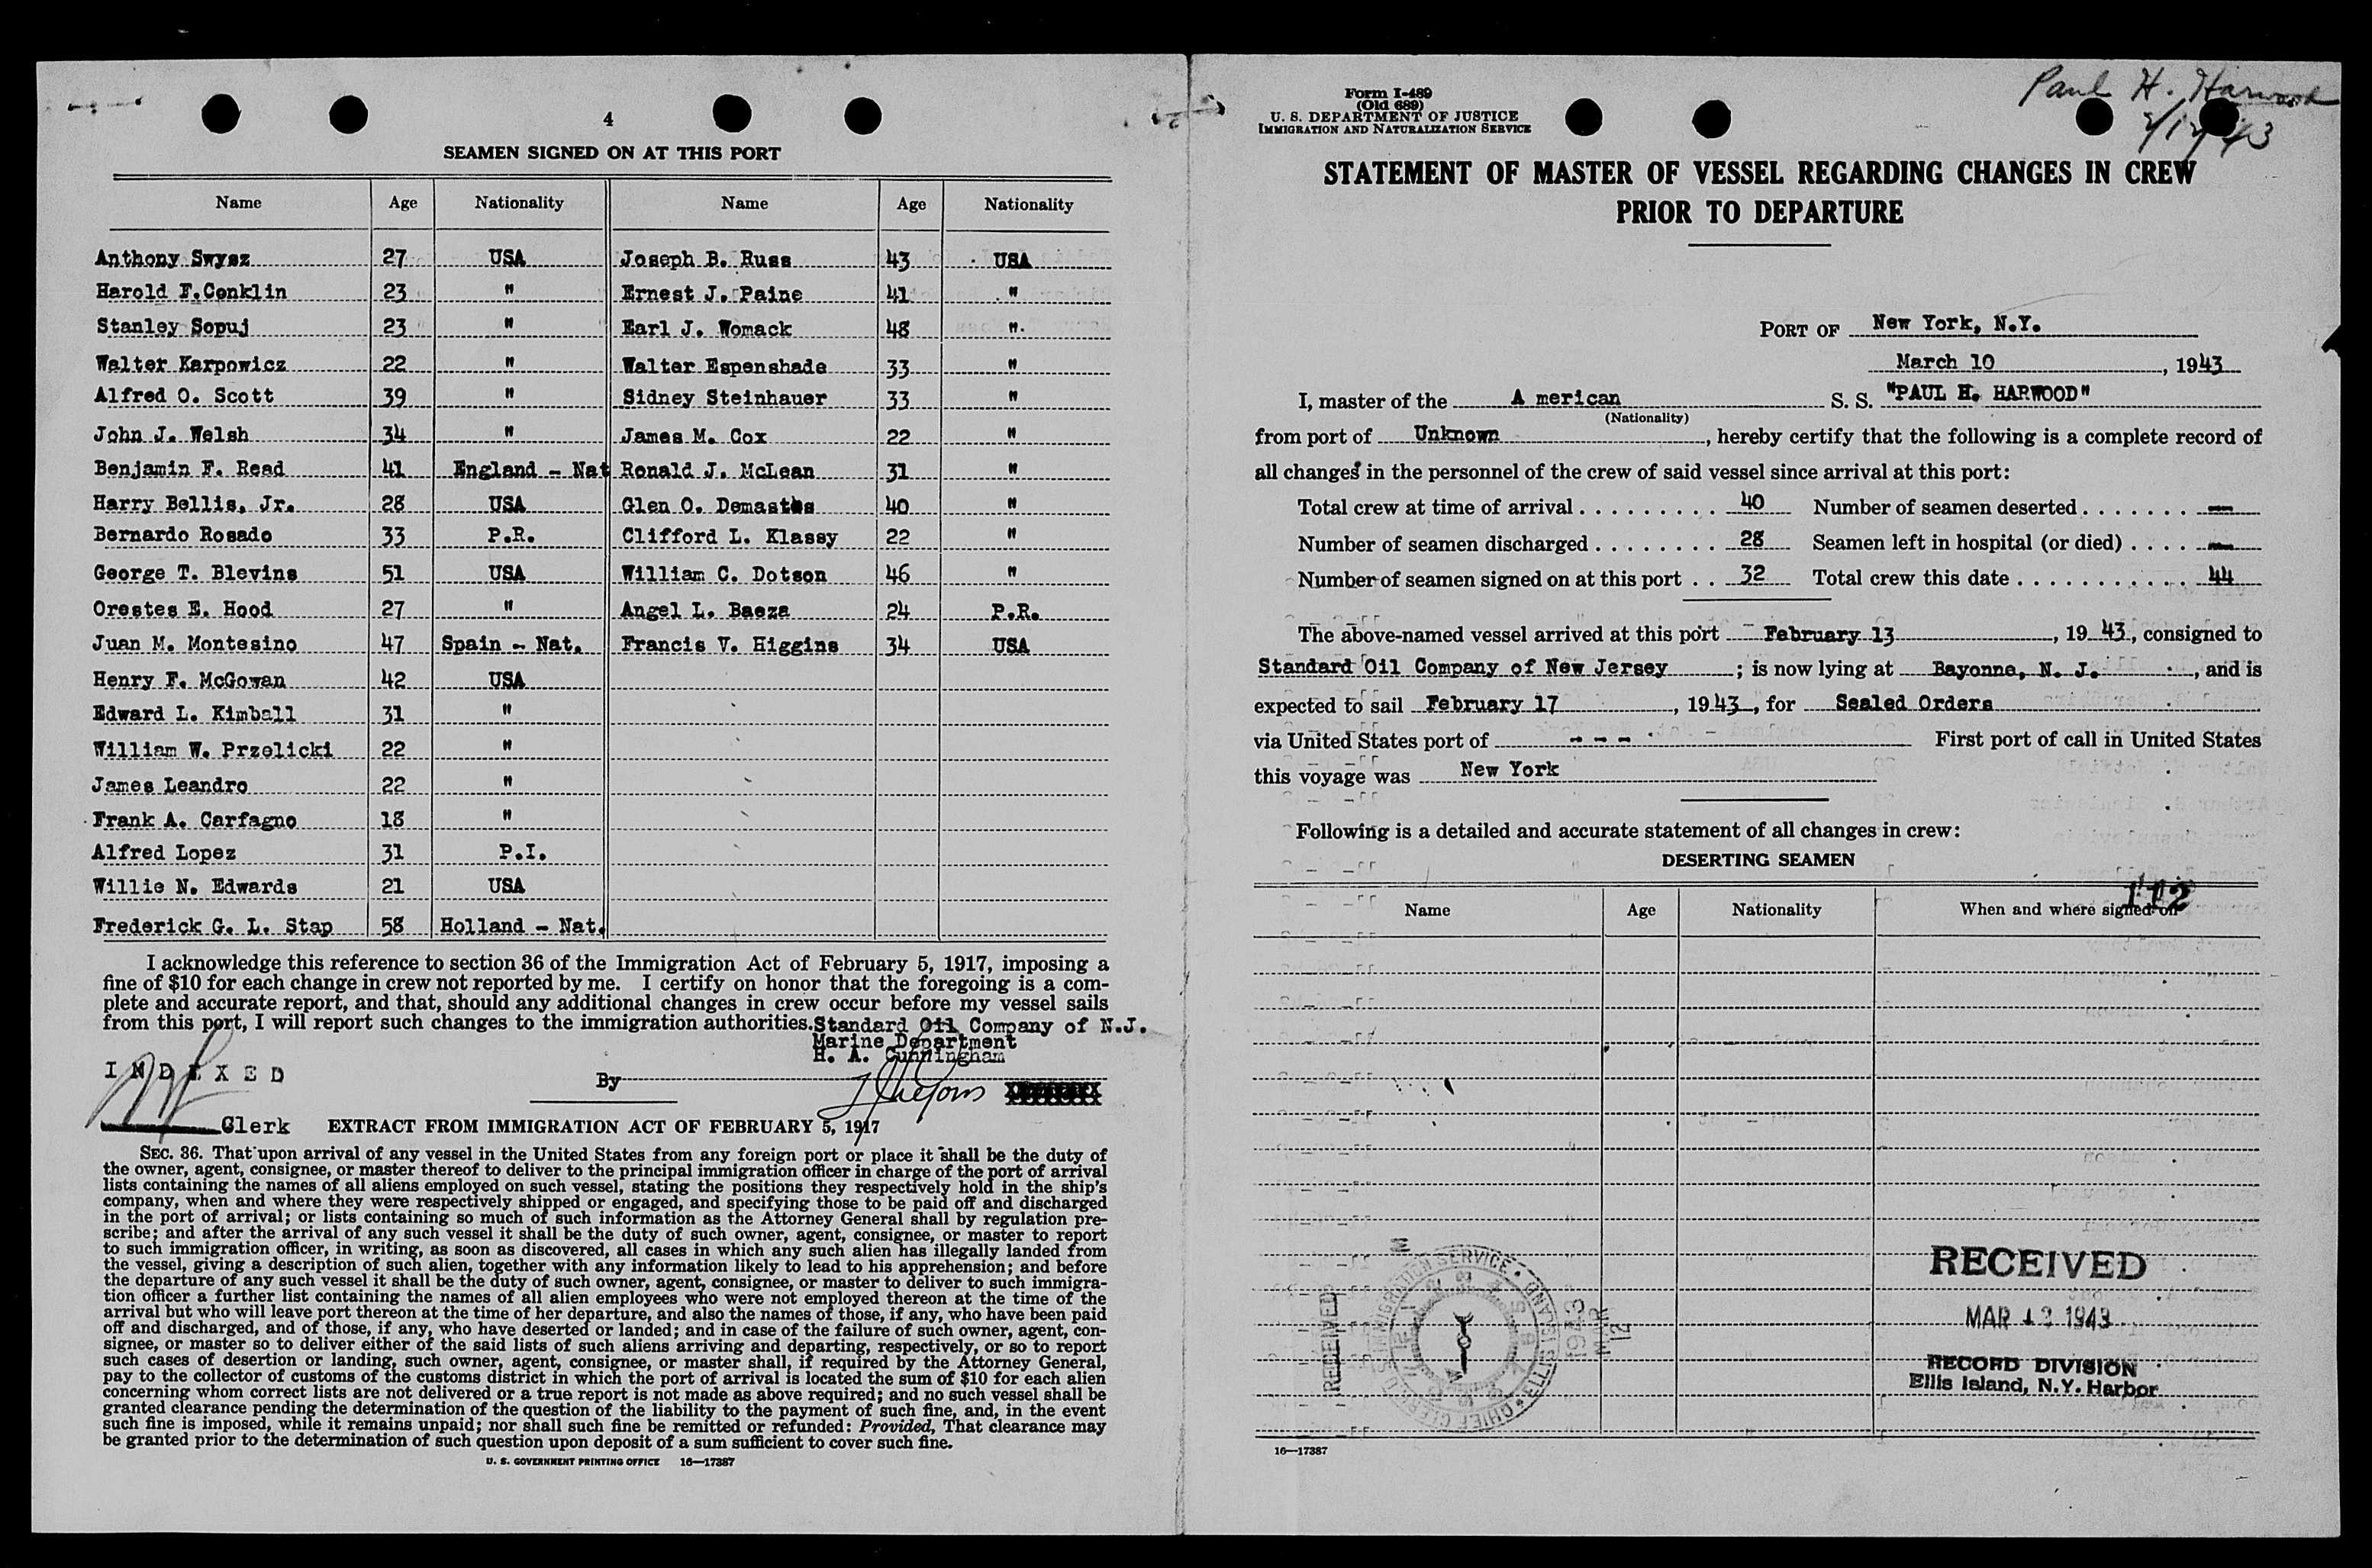 4
SEAMEN SIGNED ON AT THIS PORT
Name Age Nationality Name Age Nationality
Anthony Swysz 27 USA Joseph B. Russ 43 USA
Harold F. Conklin 23 " Ernest J. Paine 41 "
Stanley Sopuj 23 " Earl J. Womack 48 "
Walter Karpowicz 22 " Walter Espenshade 33 "
Alfred O. Scott 39 " Sidney Steinhauer 33 "
John J. Welsh 34 " James M. Cox 22 "
Benjamin F. Read 41 England - Nat Ronald J. McLean 31 "
Harry Bellis, Jr. 28 USA Glen O. Demastes 40 "
Bernardo Rosado 33 P.R. Clifford L. Klassy 22 "
George T. Blevins 51 USA William C. Dotson 46 "
Orestes E. Hood 27 " Angel L. Baeza 24 P.R.
Juan M. Montesino 47 Spain - Nat. Francis V. Higgins 34 USA
Henry F. McGowan 42 USA
Edward L. Kimball 31 "
William W. Przelicki 22 "
James Leandro 22 "
Frank A. Carfagno 18 "
Alfred Lopez 31 P.I.
Willie N. Edwards 21 USA
Frederick G. L. Stap 58 Holland - Nat.
I acknowledge this reference to section 36 of the Immigration Act of February 5, 1917, imposing a
fine of $10 for each change in crew not reported by me. I certify on honor that the foregoing is a com-
plete and accurate report, and that, should any additional changes in crew occur before my vessel sails
from this port, I will report such changes to the immigration authorities. Standard Oil Company of N.J.
Marine Department
H. A. Cunningham
INDEXED
By
Clerk EXTRACT FROM IMMIGRATION ACT OF FEBRUARY 5, 1917
SEC. 36. That upon arrival of any vessel in the United States from any foreign port or place it shall be the duty of
the owner, agent, consignee, or master thereof to deliver to the principal immigration officer in charge of the port of arrival
lists containing the names of all aliens employed on such vessel, stating the positions they respectively hold in the ship's
company, when and where they were respectively shipped or engaged, and specifying those to be paid off and discharged
in the port of arrival; or lists containing so much of such information as the Attorney General shall by regulation pre-
scribe; and after the arrival of any such vessel it shall be the duty of such owner, agent, consignee, or master to report
to such immigration officer, in writing, as soon as discovered, all cases in which any such alien has illegally landed from
the vessel, giving a description of such alien, together with any information likely to lead to his apprehension; and before
the departure of any such vessel it shall be the duty of such owner, agent, consignee, or master to deliver to such immigra-
tion officer a further list containing the names of all alien employees who were not employed thereon at the time of the
arrival but who will leave port thereon at the time of her departure, and also the names of those, if any, who have been paid
off and discharged, and of those, if any, who have deserted or landed; and in case of the failure of such owner, agent, con-
signee, or master so to deliver either of the said lists of such aliens arriving and departing, respectively, or so to report
such cases of desertion or landing, such owner, agent, consignee, or master shall, if required by the Attorney General,
pay to the collector of customs of the customs district in which the port of arrival is located the sum of $10 for each alien
concerning whom correct lists are not delivered or a true report is not made as above required; and no such vessel shall be
granted clearance pending the determination of the question of the liability to the payment of such fine, and, in the event
such fine is imposed, while it remains unpaid; nor shall such fine be remitted or refunded: Provided, That clearance may
be granted prior to the determination of such question upon deposit of a sum sufficient to cover such fine.
U. S. GOVERNMENT PRINTING OFFICE 16—17387
Paul H. Harwood
Form I-489
(Old 689)
U. S. DEPARTMENT OF JUSTICE
IMMIGRATION AND NATURALIZATION SERVICE
STATEMENT OF MASTER OF VESSEL REGARDING CHANGES IN CREW
PRIOR TO DEPARTURE
PORT OF New York, N.Y.
March 10, 1943
I, master of the A merican S. S. "PAUL H. HARWOOD"
(Nationality)
from port of Unknown, hereby certify that the following is a complete record of
all changes in the personnel of the crew of said vessel since arrival at this port:
Total crew at time of arrival 40 Number of seamen deserted —
Number of seamen discharged 28 Seamen left in hospital (or died) —
Number of seamen signed on at this port 32 Total crew this date 44
The above-named vessel arrived at this port February 13, 1943, consigned to
Standard Oil Company of New Jersey; is now lying at Bayonne, N. J., and is
expected to sail February 17, 1943, for Sealed Orders
via United States port of - - - First port of call in United States
this voyage was New York
Following is a detailed and accurate statement of all changes in crew:
DESERTING SEAMEN
112
Name Age Nationality When and where signed on
RECEIVED
MAR 12 1943
RECORD DIVISION
Ellis Island, N.Y. Harbor
RECEIVED
1943
MAR
12
16—17387